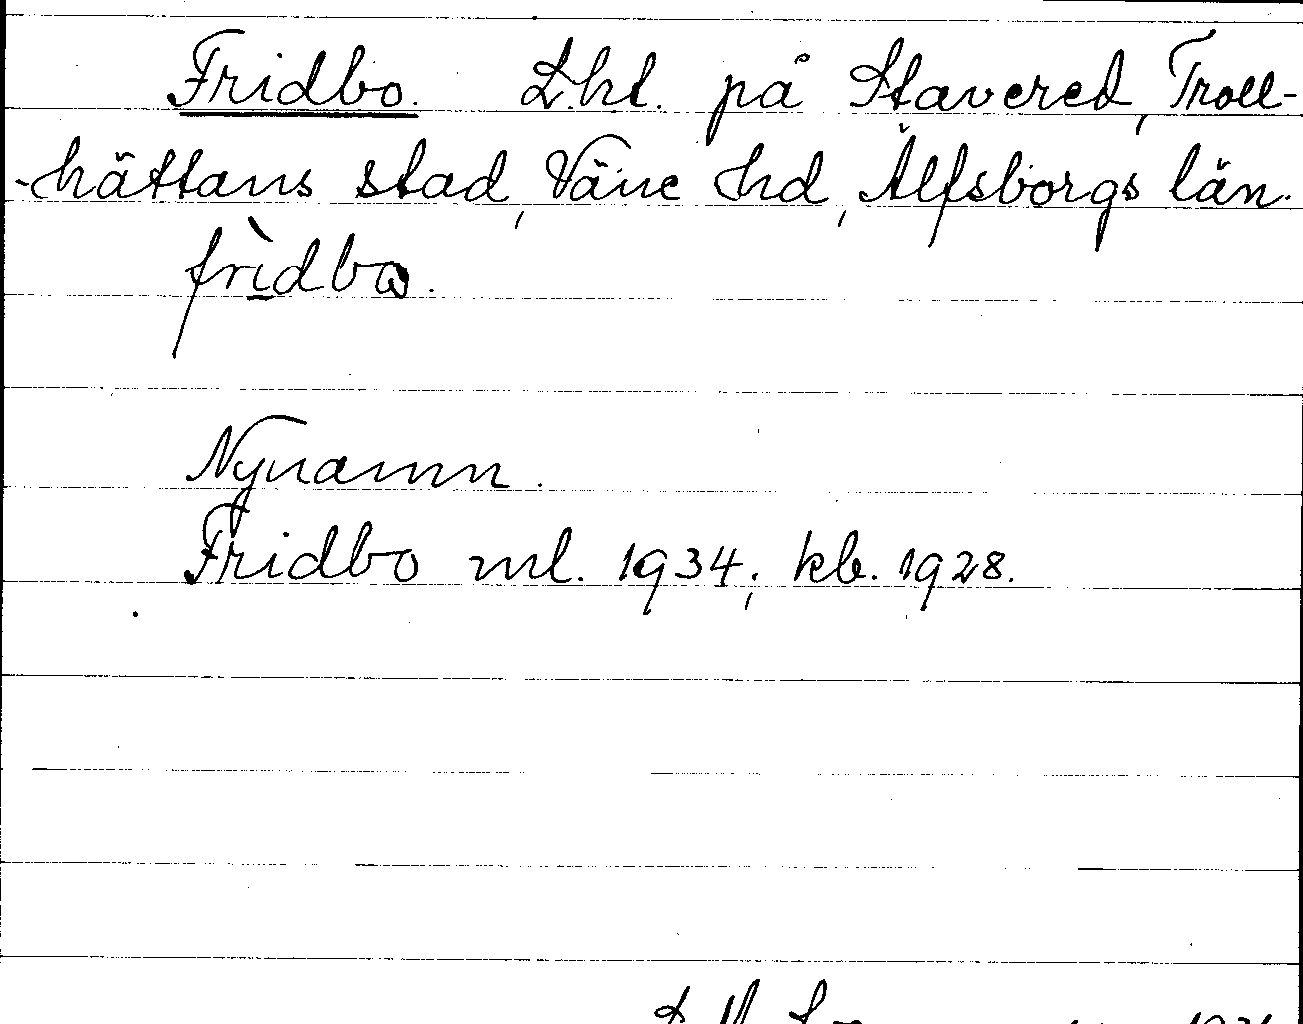 Fridbo. Lht. på Stavered, Troll-
-hättans stad, Väne hd, Älfsborgs län.
frìdbω.
Nynamn.
Fridbo ml. 1934; kb. 1928.